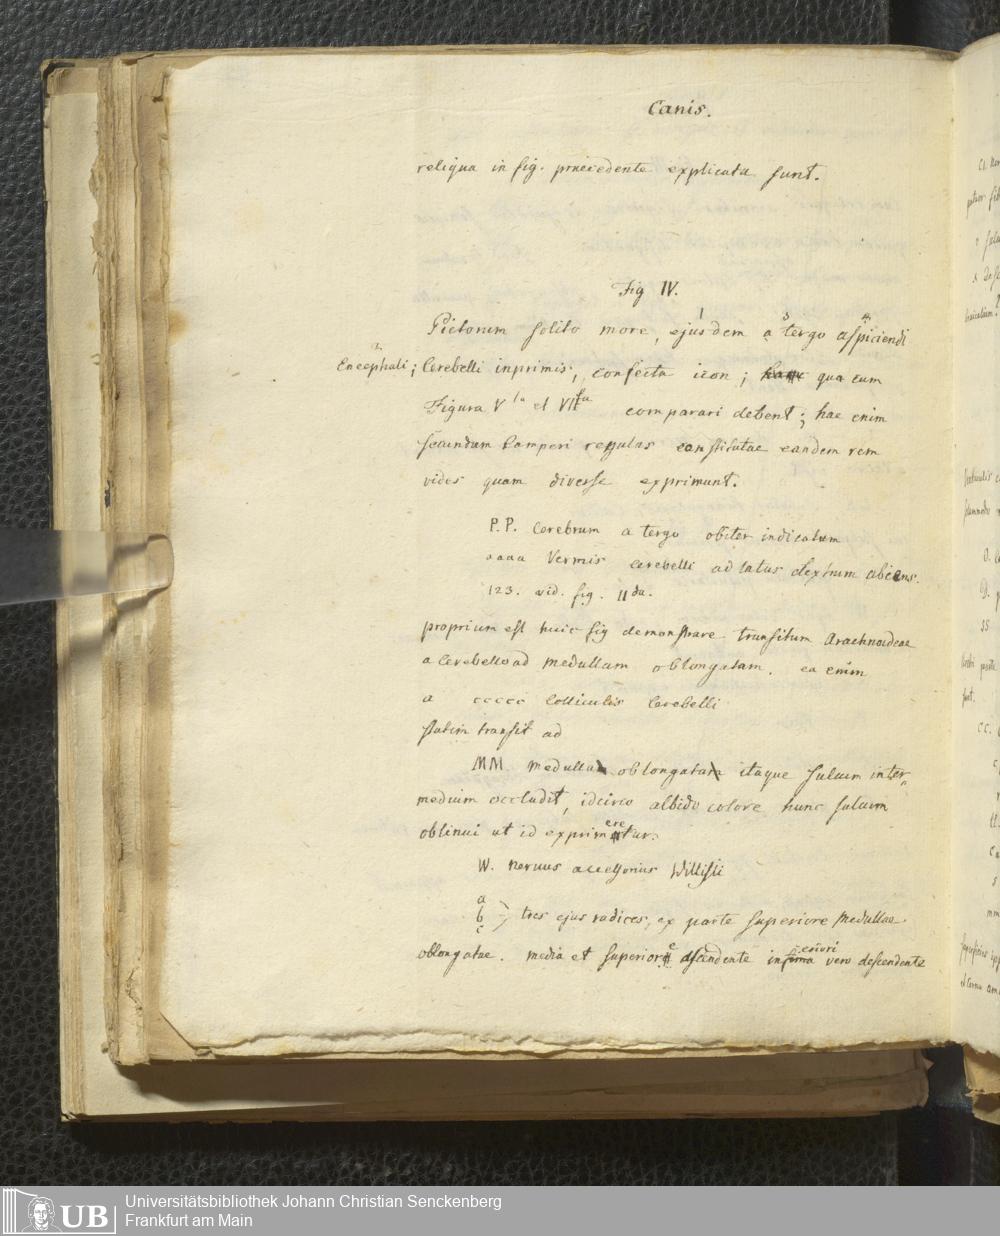 Canis.
reliqua in fig. praecedente explicata sunt.
Fig IV.
1 3 4
Pictorum solito more, ejusdem a tergo aspiciendi
2
Encephali; Cerebelli inprimis, confecta icon; quae cum
Figura Vta et VIIta comparari debent; hae enim
secundum Camperi regulas constitutae eandem rem
vides quam diverse exprimunt.
P.P. Cerebrum a tergo obiter indicatum
aaaa Vermis cerebelli ad latus dextrum abiens.
123. vid. fig. IIda.
proprium est huic fig demonstrare transitum Arachnoideae
a Cerebello ad medullam oblongatam. ea enim
a ccccc Colliculis Cerebelli
statim transit ad
MM medullam oblongatam itaque sulcum inter-
medium occludit, idcirco albido colore hunc sulcum
oblinui ut id exprimeretur.
W. nervus accessorius Willisii
a
b } tres ejus radices, ex parte superiore Medullae
c
oblongatae. media et superiore ascendente inferiori vero descendente
Universitätsbibliothek Johann Christian Senckenberg
Frankfurt am Main
UB